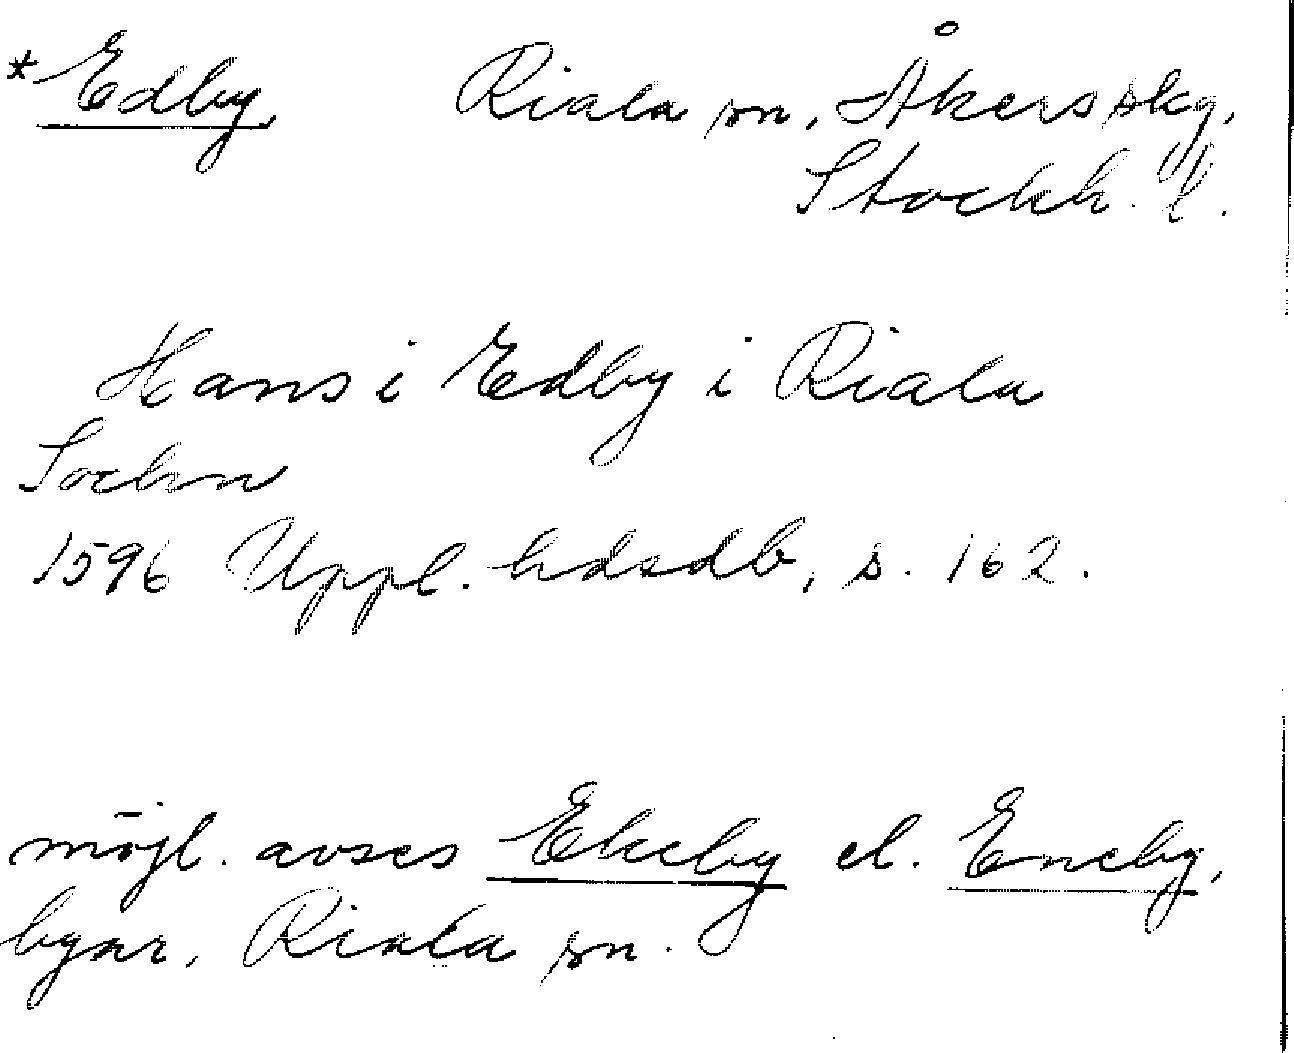 *Edby, Riala sn, Åkers skg,
Stockh. l.
Hans i Edby i Riala
Sochn
1596 Uppl. hdsdb, s. 162.
möjl. avses Ekeby el. Eneby,
byar, Riala sn.